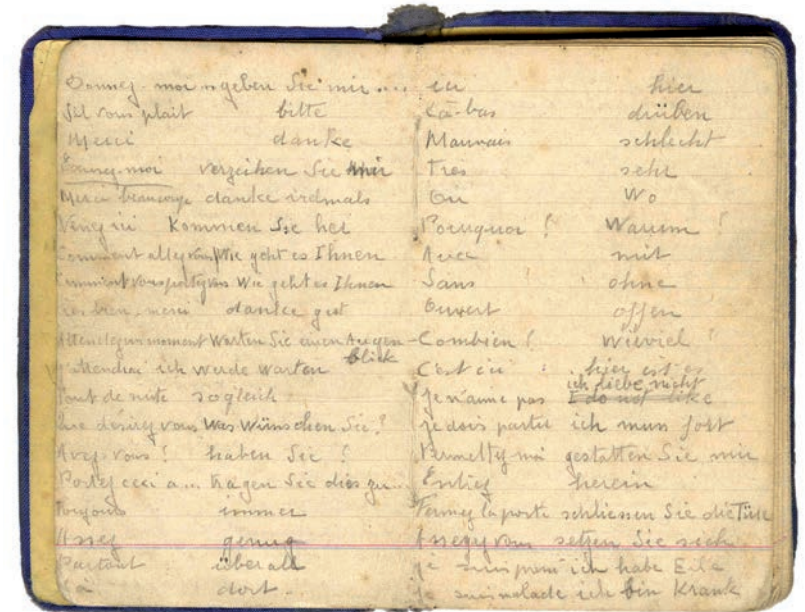 Donnez-moi geben Sie mir ....
S'il vous plait bitte
Merci danke
verzeihen Sie mir
Merci beaucoup danke
Venez ici Kommen Sie her
Comment allez vous Wie geht es Ihnen
Comment vous portez vous Wie geht es Ihnen
Tres bien, merci danke gut
Attendez un moment Warten Sie einen Augen-
blick
J'attendrai ich werde warten
Tout de suite sogleich
Que désirez vous Was Wünschen Sie?
Avez-vous? haben Sie?
Portez ceci a... tragen Sie dies zu...
Toujours immer
Assez genug
Partout überall
Là dort.
ici hier
Là-bas drüben
Mauvais schlecht
Tres sehr
Ou Wo
Pourquoi? Warum?
Avec mit
Sans ohne
Ouvert offen
Combien? wieviel?
C'est ici : hier ist es
ich liebe nicht
Je n'aime pas I do not like
Je dois partir ich muss fort
Permettez moi gestatten Sie mir
Entrez herein
Fermez la porte schliessen Sie die Türe
Asseyez vous setzen Sie sich
Je suis ich habe Eile
Je suis malade ich bin Krank